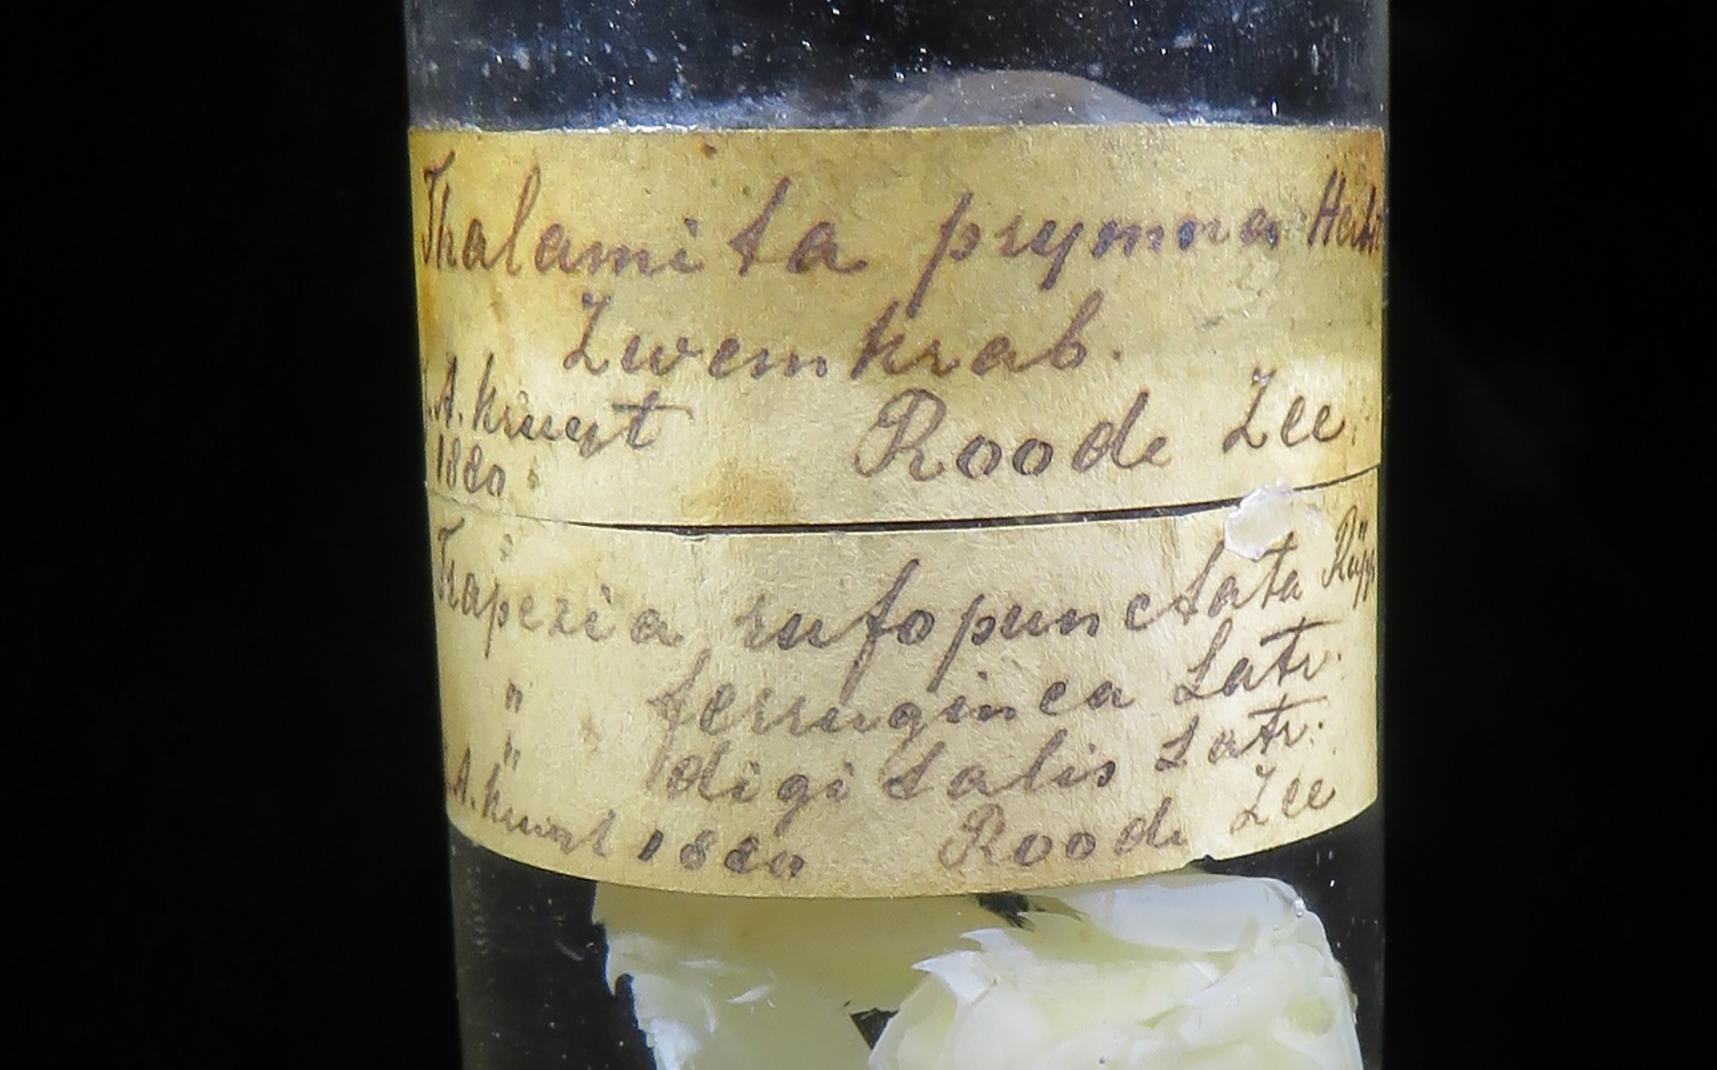 Thalamita prymna Herbst
Zwemkrab.
.A. Kruyt Roode Zee
1880
Trapezia rufopunctata Rüpp
" ferruginea Latr.
" digitalis Latr.
.A. Kruyt 1880 Roode Zee